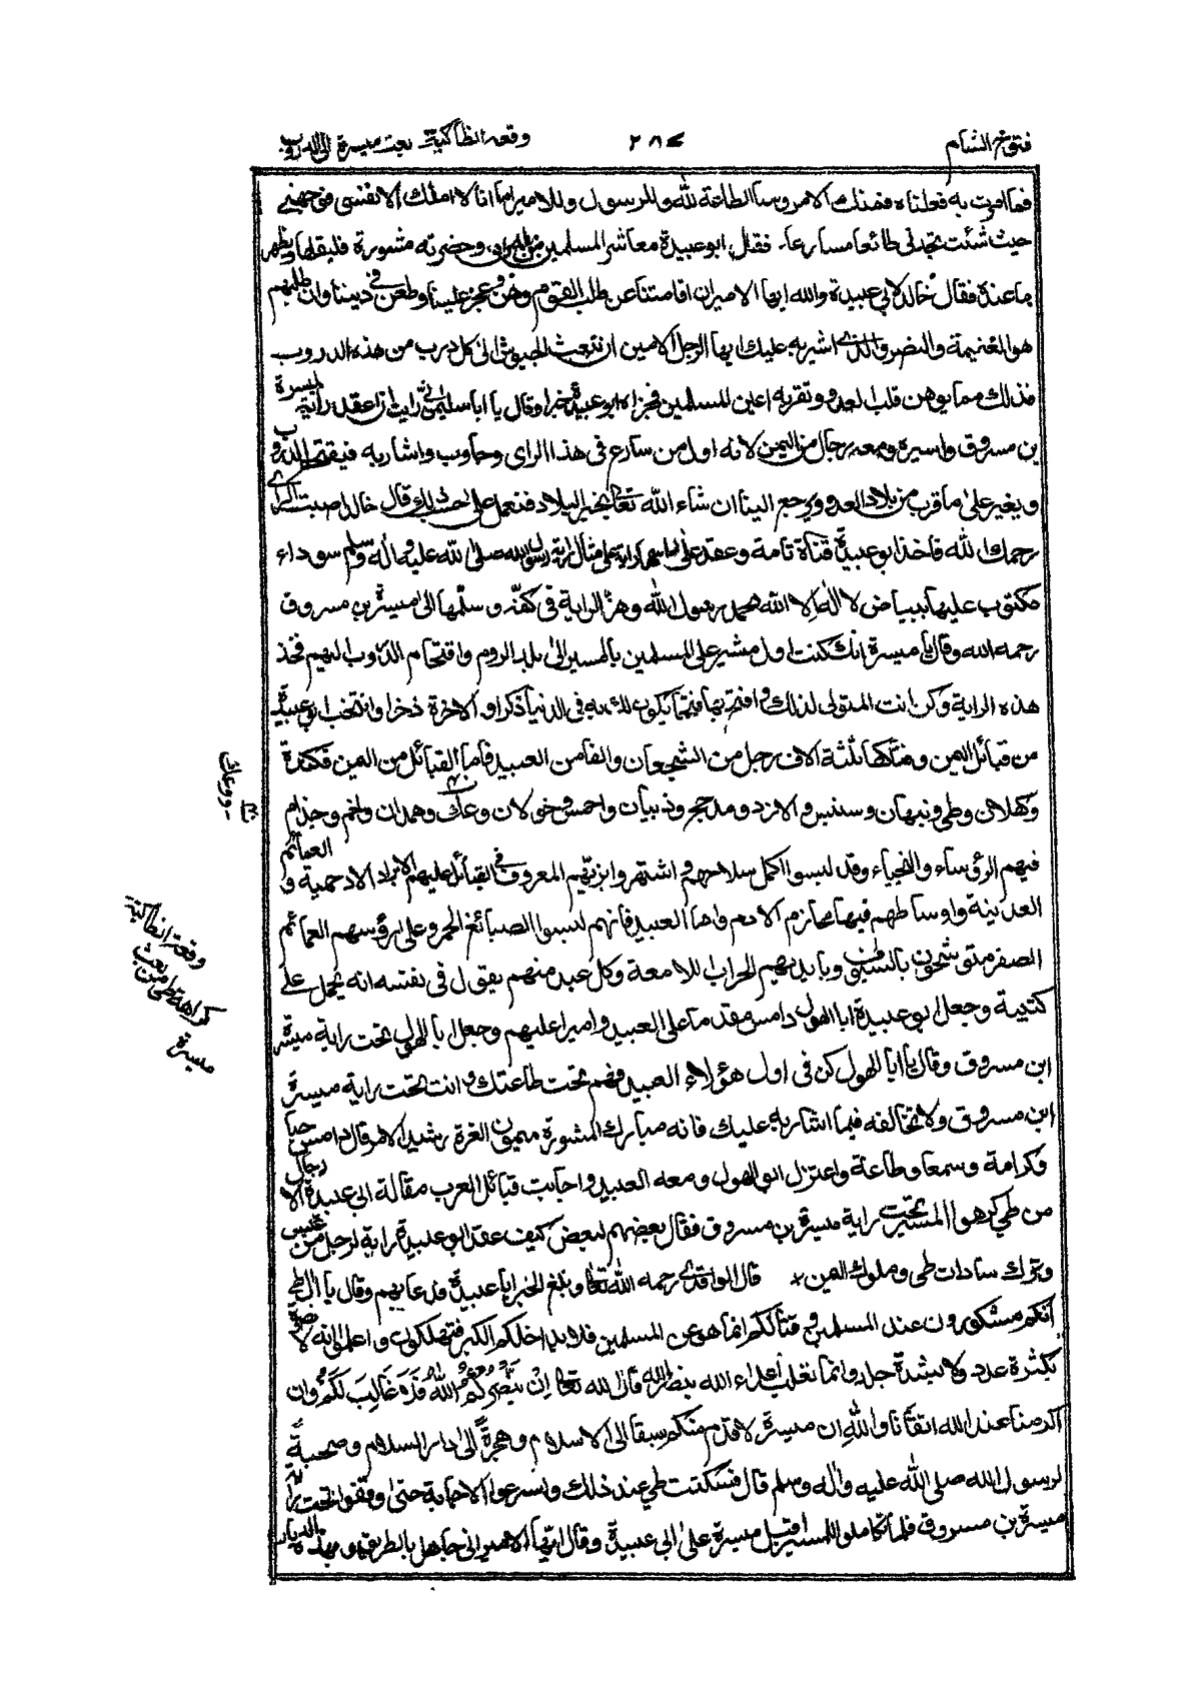 فتوح الشام ٢٨٧ وقعه انطاكية بعث ميسرة الى الدروب
فما امرت به فعلناه فمنك الامر ومنا الطاعة لله وللرسول وللامير اما انا لا املك الا نفسى فوجهنى
حيث شئت تجدنى طائعا مسارعا فقال ابو عبيدة معاشر المسلمين من له راى وحضرته مشورة فليقلها ويظهر
ما عنده فقال خالد لابى عبيدة والله ايها الامير ان اقامتنا عن طلب القوم وهن وعجز علينا وطعن فى ديننا وان طلبهم
هو الغنيمة والنصر والذى اشير به عليك ايها الرجل الامين ان تبعث الجيوش الى كل درب من هذه الدروب
فذلك مما يوهن قلب العدو وتقر به اعين المسلمين فجزاه ابو عبيدة خيرا وقال يا ابا سليمان انى رايت ان اعقد راية لميسرة
بن مسروق واسيره ومعه رجال من اليمن لانه اول من سارع فى هذا الراى وجاوب واشار به فيقتحم الدروب
ويغير على ما قرب من بلاد العدو ويرجع الينا ان شاء الله تعالى بخبر البلاد فنعمل على حسب ذلك قال خالد اصبت الراى
رحمك الله فاخذ ابو عبيدة قناة تامة وعقد على راسها راية على مثال راية رسول الله صلى الله عليه وآله وسلم سوداء
مكتوب عليها ببياض لا اله الا الله محمد رسول الله وهز الراية فى كفه وسلمها الى ميسرة بن مسروق
رحمه الله وقال يا ميسرة انك كنت اول مشير على المسلمين بالمسير الى بلد الروم واقتحام الدروب اليهم فخذ
هذه الراية وكن انت المتولى لذلك وافتح بها فتحا يكون لك به فى الدنيا ذكرا وفى الآخرة ذخرا وانتخب ابو عبيدة
من قبائل اليمن ثلثة الاف رجل من الشجعان والفا من العبيد فاما القبائل من اليمن فكندة
وكهلان وطى ونبهان وسنبس والازد ومذحج وذبيان واحمس وخولان وعك وهمدان ولخم وجذام
فيهم الرؤساء والنجباء وقد لبسوا اكمل سلاحهم واشتهروا بزيهم المعروف فى القبائل عليهم الابراد الادحمية والعمائم
العدنية واوساطهم فيها محازم الادم واما العبيد فانهم لبسوا الصبائغ الحمر وعلى رؤسهم العمائم
الصفر متوشحون بالسيوف وبايديهم الحراب اللامعة وكل عبد منهم يقول فى نفسه انه يحمل على
كتيبة وجعل ابو عبيدة ابا الهول دامس مقدما على العبيد واميرا عليهم وجعل ابا الهول تحت راية ميسرة
ابن مسروق وقال يا ابا الهول كن فى اول هؤلاء العبيد فهم تحت طاعتك وانت تحت راية ميسرة
ابن مسروق ولا تخالفه فيما اشار به عليك فانه مبارك المشورة ميمون الغرة رشيد الامر قال دامس حبا
وكرامة وسمعا وطاعة واعتزل ابو الهول ومعه العبيد واجابت قبائل العرب مقالة ابى عبيدة الا رجال
من طى كرهوا المسير تحت راية ميسرة بن مسروق فقال بعضهم لبعض كيف عقد ابو عبيدة راية لرجل من عبس
وترك سادات طى وملوك اليمن قال الواقدى رحمه الله تعالى وبلغ الخبر ابا عبيدة فدعا بهم وقال يا آل طى
انكم مشكورون عند المسلمين فى قتالكم انما هو عن المسلمين فلا يداخلكم الكبر فتهلكوا واعلموا انه لا نصرة
بكثرة عدد ولا بشدة جلد وانما نغلب اعداء الله بنصر الله قال الله تعالى اِنْ يَنْصُرْكُمُ اللهُ فَلَا غَالِبَ لَكُمْ وان
اكرمنا عند الله اتقانا والله ان ميسرة لاقدم منكم سبقا الى الاسلام وهجرة الى دار السلام وصحبة
لرسول الله صلى الله عليه وآله وسلم قال فسكتت طى عند ذلك واسرعوا الاجابة حتى وقفوا تحت راية
ميسرة بن مسروق فلما تكاملوا للمسير اقبل ميسرة على ابى عبيدة وقال ايها الامير انى جاهل بالطرق وبهذه الديار
وقعة انطاكية
كراهة طى من بعث
ميسرة